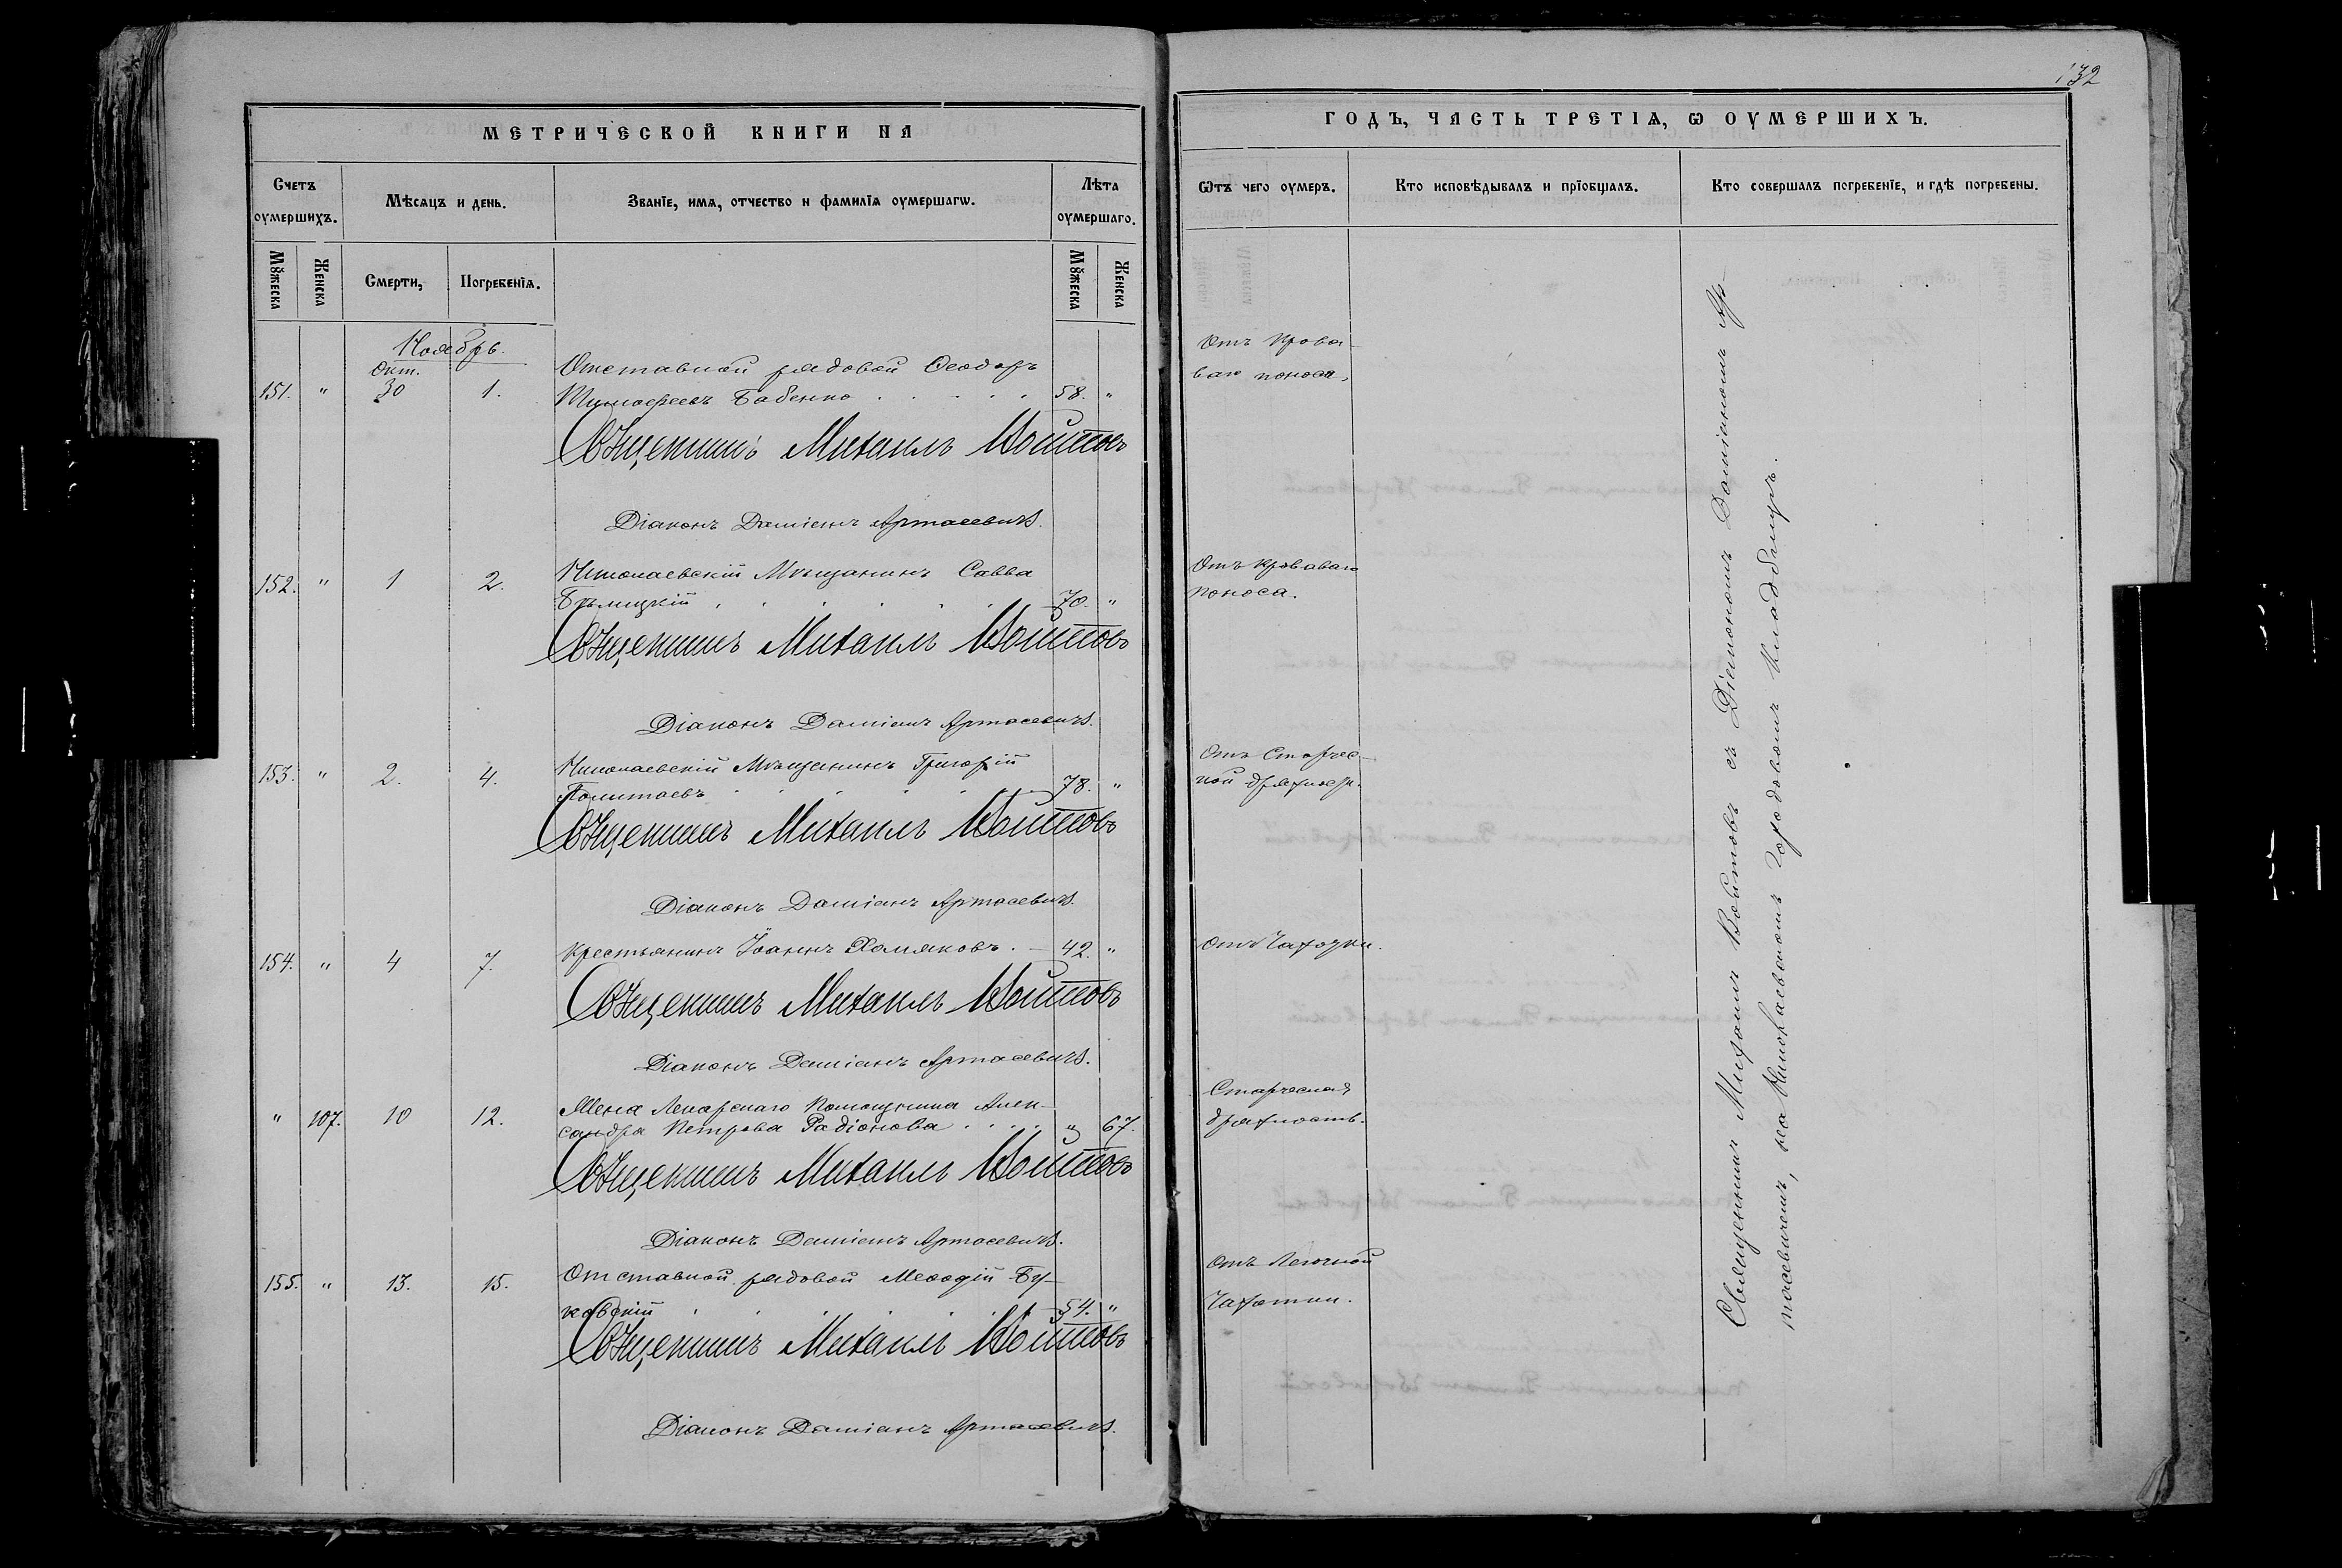 132
МЕТРИЧЕСКОЙ КНИГИ НА
ГОДЪ, ЧАСТЬ ТРЕТІѦ, Ѡ ОУМЕРШИХЪ.
Счетъ оумершихъ.
Мѣсяцъ и день.
Званіе, имѧ, отчество и фамиліѧ оумершагѡ.
Лѣта оумершаго.
Ѿтъ чего оумеръ.
Кто исповѣдывалъ и пріобщалъ.
Кто совершалъ погребеніе, и гдѣ погребены.
Мꙋжеска
Женска
Смерти,
Погребеніѧ.
Мꙋжеска
Женска
Ноябрь.
Окт.
151. " 30 1. Отставной рядовой Ѳеодоръ
Тимофеевъ Бабенко . . . . . 58. "
Отъ крова-
ваго поноса,
Священникъ Михаилъ Войтовъ
Діаконъ Даміанъ Артасевичъ.
152. " 1 2. Николаевскій Мѣщанинъ Савва
Бѣлицкій . . . . . . 70. "
Отъ кроваваго
поноса.
Священникъ Михаилъ Войтовъ
Діаконъ Даміанъ Артасевичъ.
153. " 2. 4. Николаевскій Мѣщанинъ Григорій
Политаевъ . . . . . . 78. "
Отъ Старчес-
кой дряхлости.
Священникъ Михаилъ Войтовъ
Діаконъ Даміанъ Артасевичъ.
154. " 4 7. Крестьянинъ Іоаннъ Хомяковъ. — 42. "
Отъ Чахотки.
Священникъ Михаилъ Войтовъ
Діаконъ Даміанъ Артасевичъ.
" 107. 10 12. Жена Лекарскаго Помощника Алек-
сандра Петрова Радіонова . . . . " 67.
Старческая
дряхлость.
Священникъ Михаилъ Войтовъ
Діаконъ Даміанъ Артасевичъ.
155. " 13. 15. Отставной рядовой Меѳодій Бу-
ковскій . . . . . . 54. "
Отъ Легочной
Чахотки.
Священникъ Михаилъ Войтовъ
Діаконъ Даміанъ Артасевичъ.
Священникъ Михаилъ Войтовъ съ Діакономъ Даміаномъ Ар-
тасевичемъ, на Николаевскомъ городовомъ кладбищѣ.